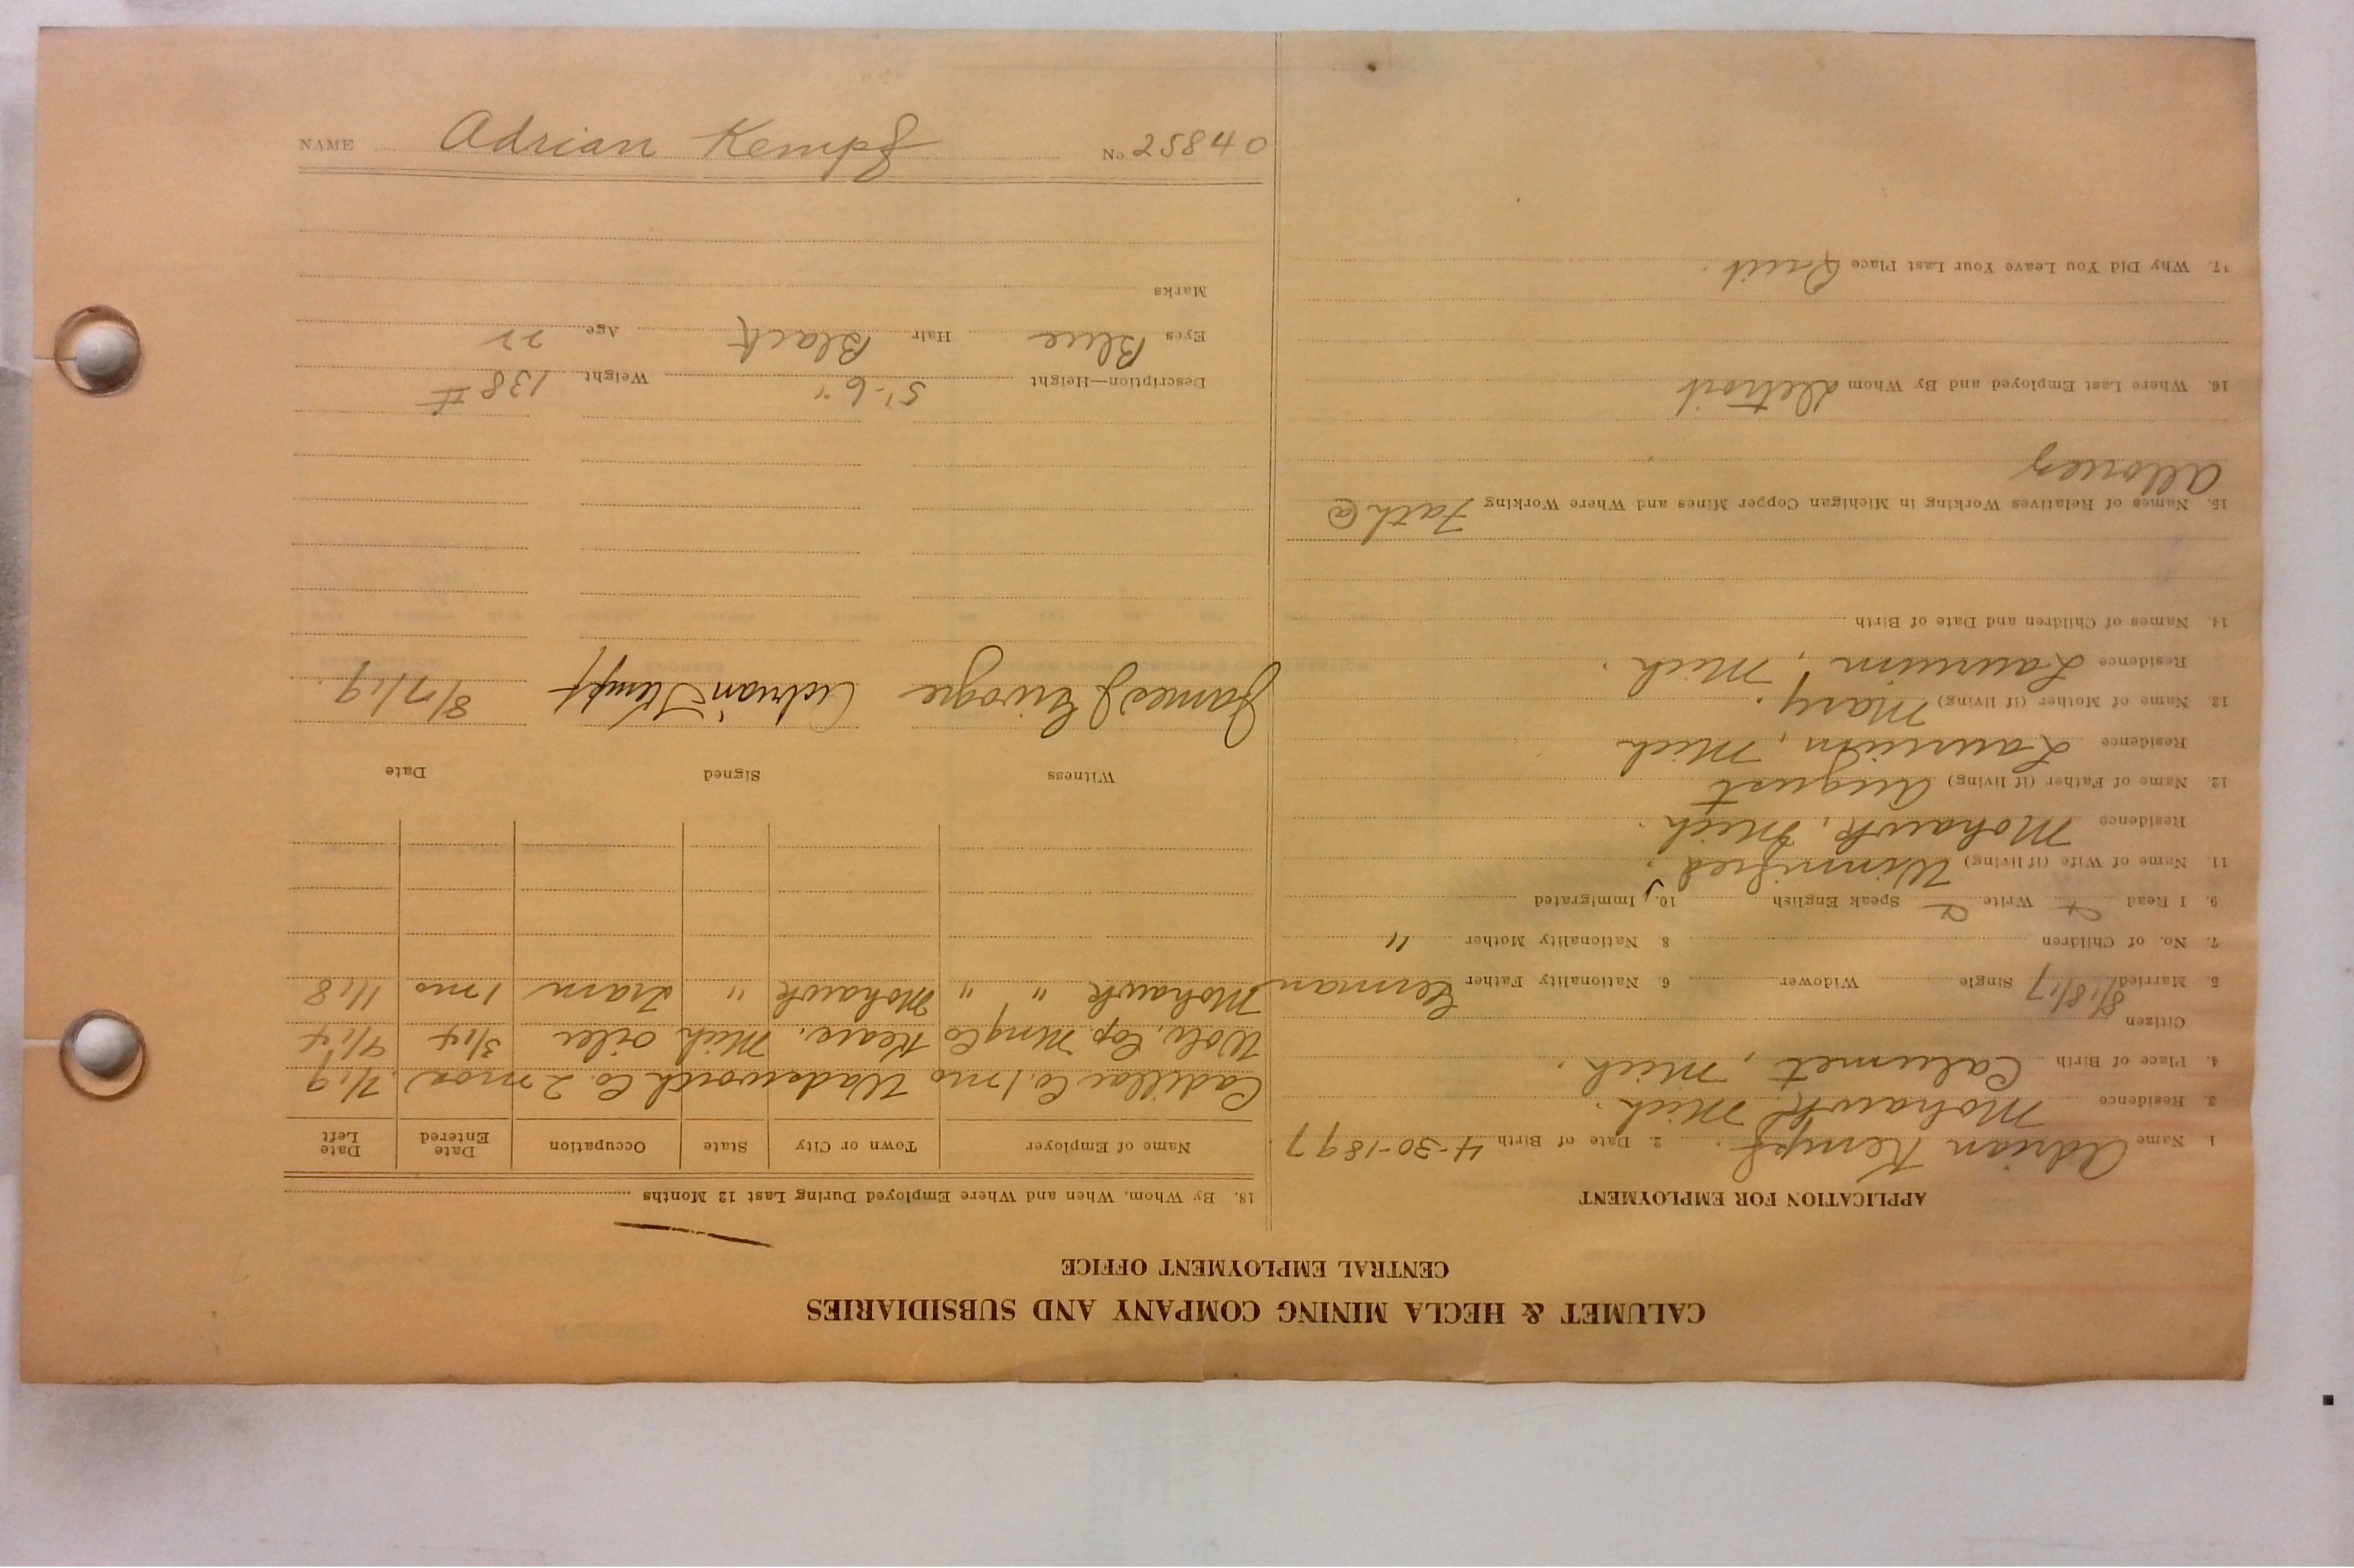 CALUMET & HECLA MINING COMPANY AND SUBSIDIARIES
CENTRAL EMPLOYMENT OFFICE
APPLICATION FOR EMPLOYMENT
1. Name Adrian Kempf. 2. Date of Birth 4-30-1897
3. Residence Mohawk Mich.
4. Place of Birth Calumet, Mich.
Citizen
5. Married 8/18/17 Single Widower 6. Nationality Father German
7. No. of Children 8 Nationality Mother "
9. I Read Write Speak English 10. Immigrated
11. Name of Wife (if living) Winnifred.
Residence Mohawk, Mich.
12. Name of Father (if living) August
Residence Laurium, Mich
13. Name of Mother (if living) Mary.
Residence Laurium, Mich.
14. Names of Children and Date of Birth
15. Names of Relatives Working in Michigan Copper Mines and Where Working Fath @
Allouez
16. Where Last Employed and By Whom Detroit
17. Why Did You Leave Your Last Place Quit.
18. By Whom, When and Where Employed During Last 12 Months
Name of Employer Town or City State Occupation Date Entered Date Left
Cadillac Co. 1 mo Wadsworth Co. 2 mos) 7/19.
Wolv. Cop. Mng Co Kears. Mich oiler 3/14 4/14
Mohawk " " Mohawk " Tram 1 mo 11/18
Witness Signed Date
James J Adrian Kempf 8/7/19.
Description—Height 5'-6" Weight 138 #
Eyes Blue Hair Black Age 22
Marks
NAME Adrian Kempf No. 25840